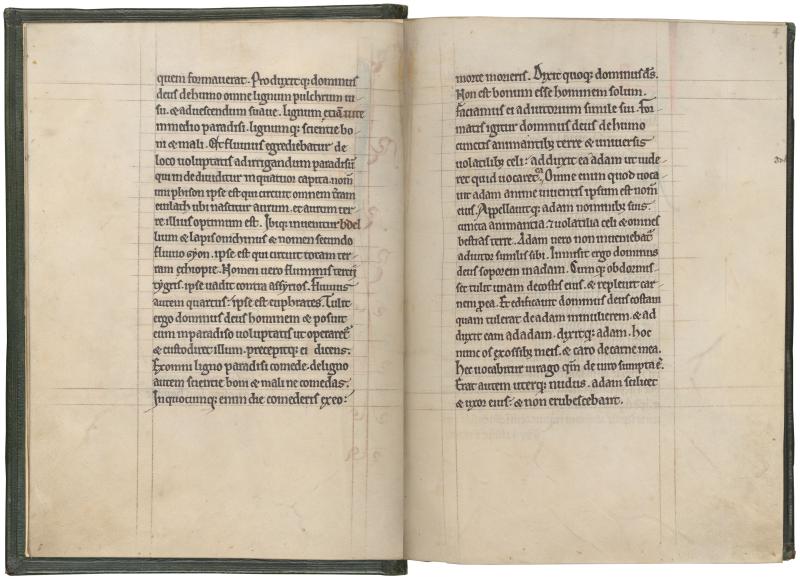 quem formauerat. Produxitq; dominus
deus de humo omne lignum pulchrum ui-
su. & ad uescendum suaue. lignum etiã uite
in medio paradisi. lignumq; scientie bo-
ni & mali. Et fluuius egrediebatur de
loco uoluptatis ad irrigandum paradisũ
qui inde diuiditur in quatuor capita. nom̃
uni phison ipse est qui circuit omnem t̃ram
euilath ubi nascitur aurum. et aurum ter-
re illius optimum est. Ibiq; inuenitur bdel
lium & lapis onichinus & nomen secundo
fluuio gyon. ipse est qui circuit totam ter-
ram ethiopie. Nomen uero fluminis tercij
tygris. ipse uadit contra assyrios. Fluuius
autem quartus: ipse est euphrates. Tulit
ergo dominus deus hominem & posuit
eum in paradiso uoluptatis ut operaret᷑
& custodiret illum. precepitq; ei dicens.
Ex omni ligno paradisi comede. de ligno
autem scientie boni & mali ne comedas.
In quocunq; enim die comederis ex eo:
morte morieris. Dixit quoq; dominus d̃s.
Non est bonum esse hominem solum.
Faciamus ei adiutorium simile sui. For-
matis igitur dominus deus de humo
cunctis animantib; terre & uniuersis
uolatilib; celi: adduxit ea ad adam ut uide-
ret quid uocaret ea. Omne enim quod uoca-
uit adam anime uiuentis ipsum est nom̃
eius. Appellauitq; adam nominib; suis
cuncta animantia. & uolatilia celi & omnes
bestias terre. Adam uero non inueniebat᷑
adiutor similis sibi. Inmisit ergo dominus
deus soporem in adam. Cumq; obdormis-
set tulit unam de costis eius. & repleuit car-
nem p ea. Et edificauit dominus deus costam
quam tulerat de adam in mulierem. & ad
duxit eam ad adam. dixitq; adam. Hoc
nunc os ex ossib; meis. & caro de carne mea.
Hec uocabitur uirago qm̃ de uiro sumpta ẽ.
Erat autem uterq; nudus. adam scilicet
& uxor eius: & non erubescebant.